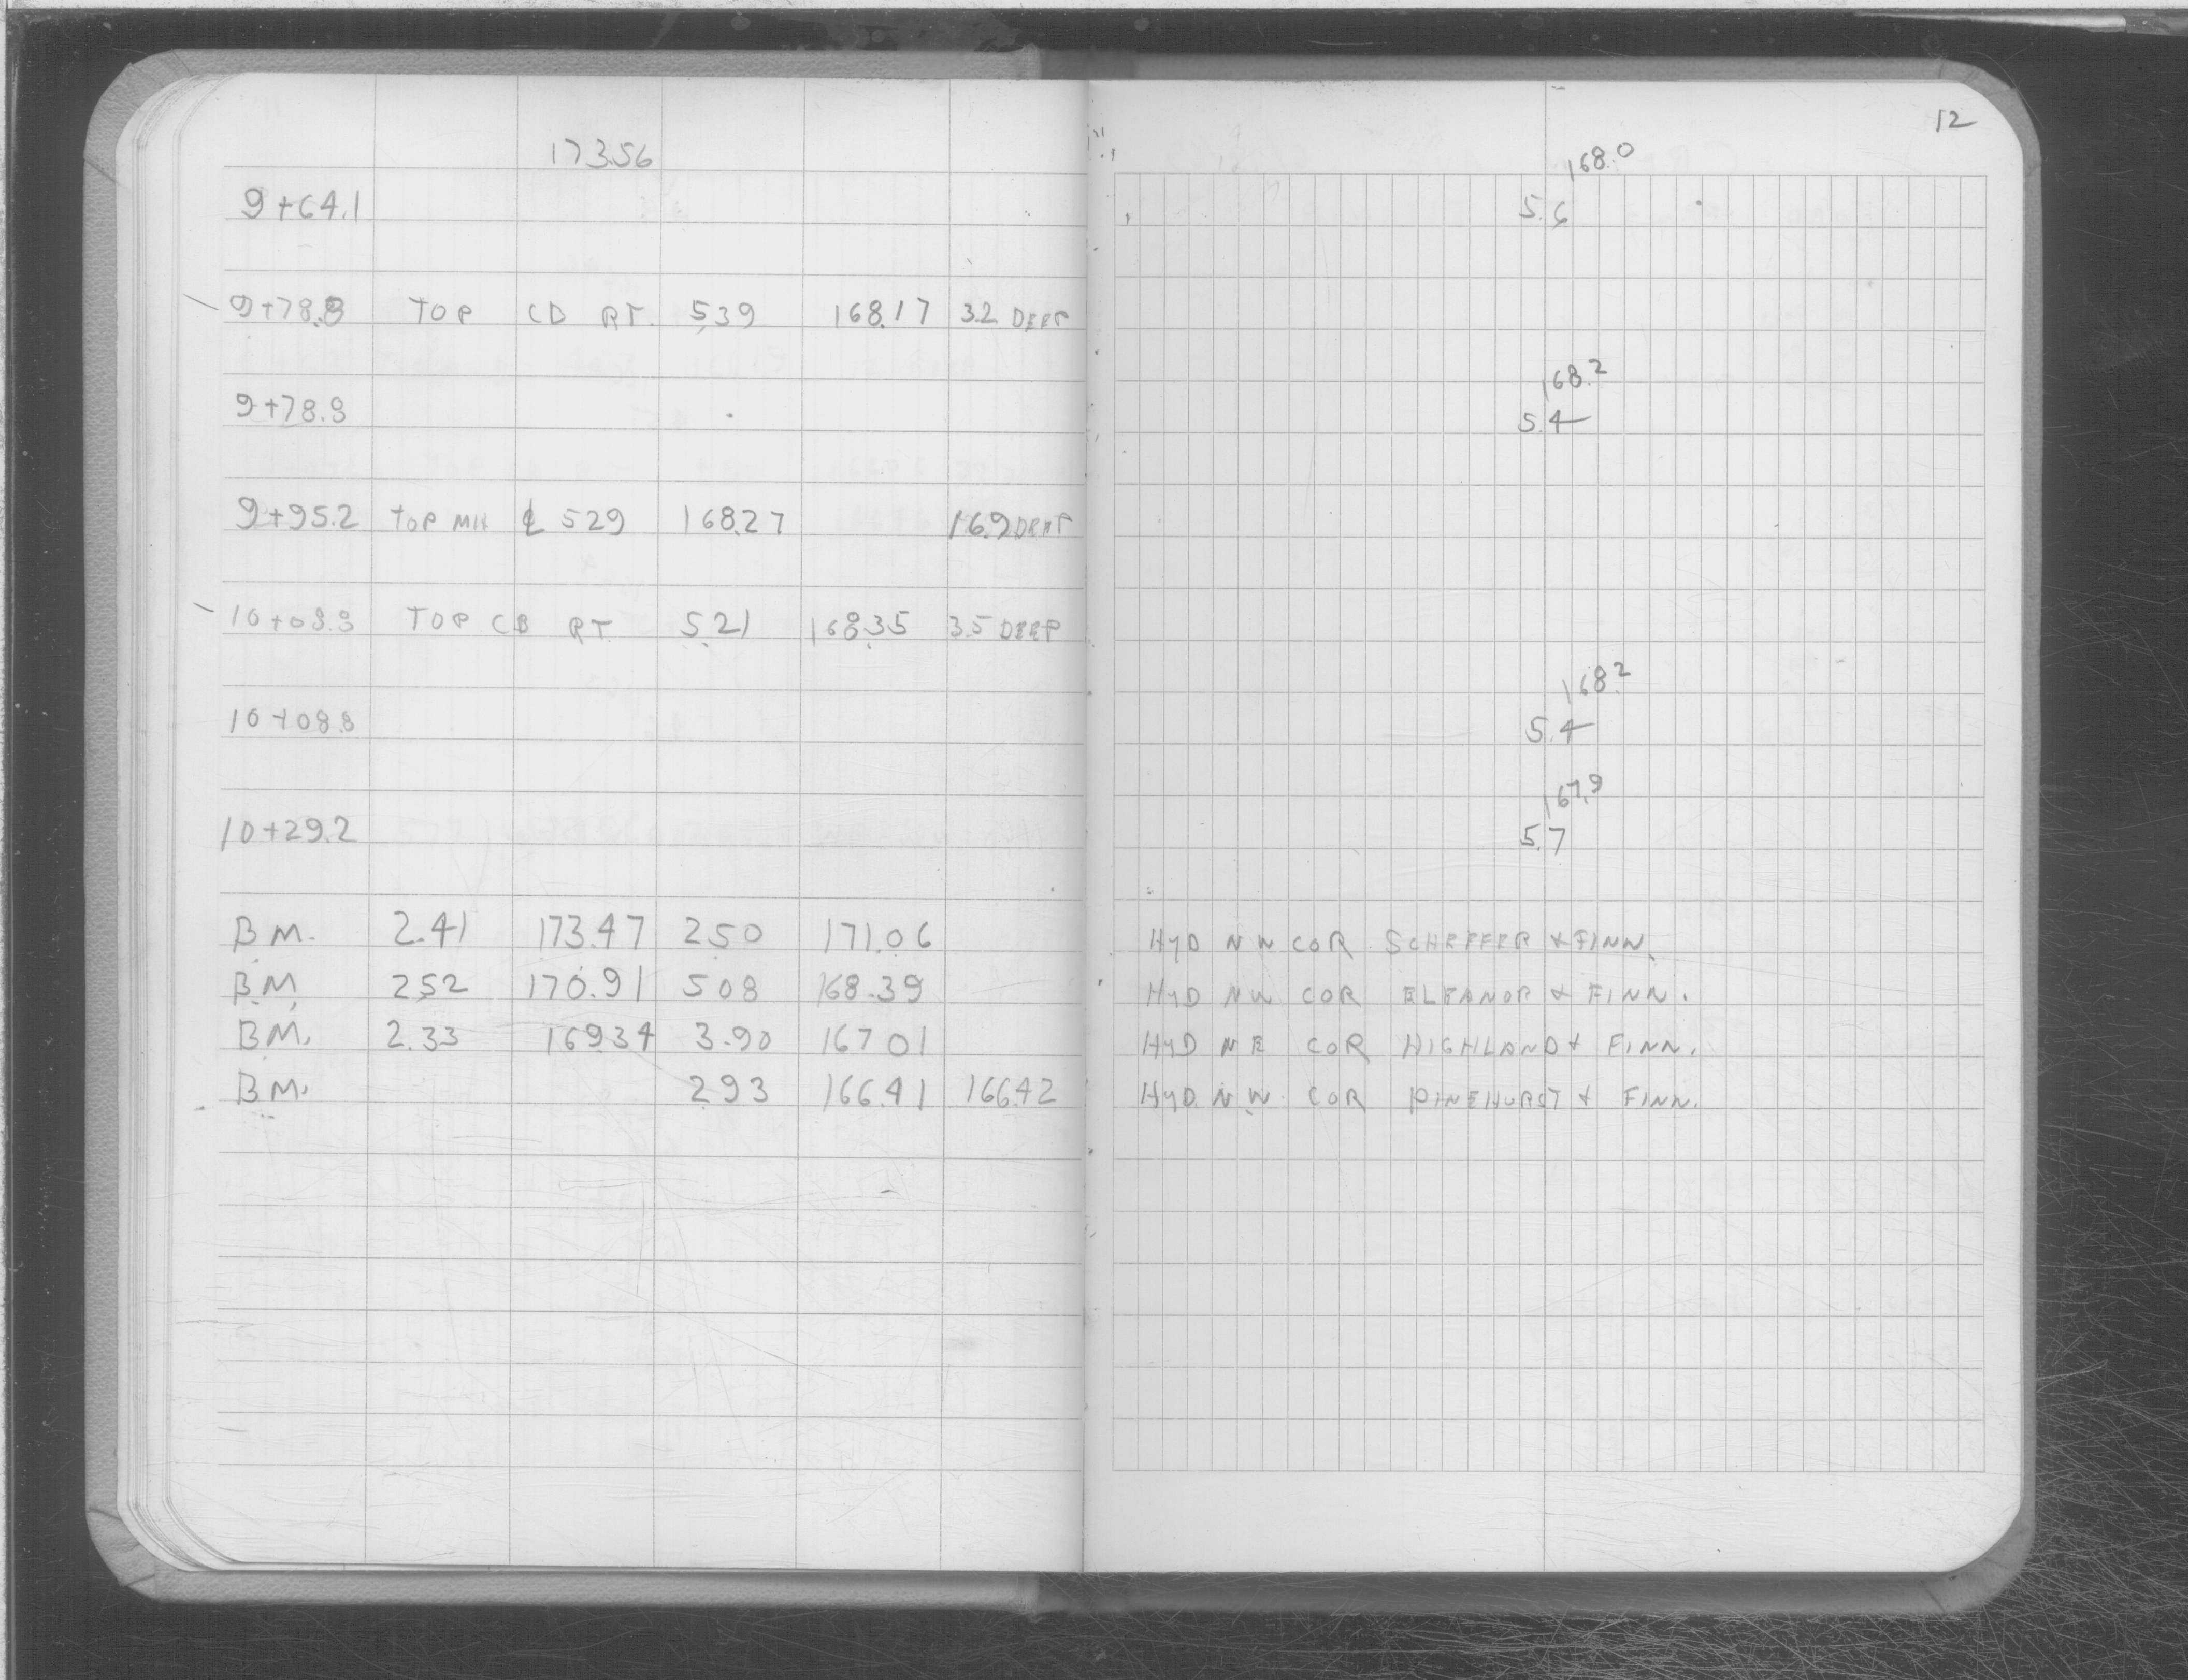 12
173.56
168.0
9+64.1 5.6
9+78.8 TOP CB RT. 5.39 168.17 3.2 DEEP
168.2
9+78.8 5.4
9+95.2 TOP MH ℄ 529 168.27 16.9 DEEP
10+08.8 TOP CB RT 5.21 168.35 3.5 DEEP
168.2
10+08.8 5.4
167.9
10+29.2 5.7
B.M. 2.41 173.47 2.50 171.06 HYD NW COR SCHEFFER & FINN.
B.M. 2.52 170.91 508 168.39 HYD NW COR ELEANOR & FINN.
B.M. 2.33 169.34 3.90 167 01 HYD NE COR HIGHLAND & FINN.
B.M. 2.93 166.41 166.42 HYD. N.W. COR PINEHURST & FINN.